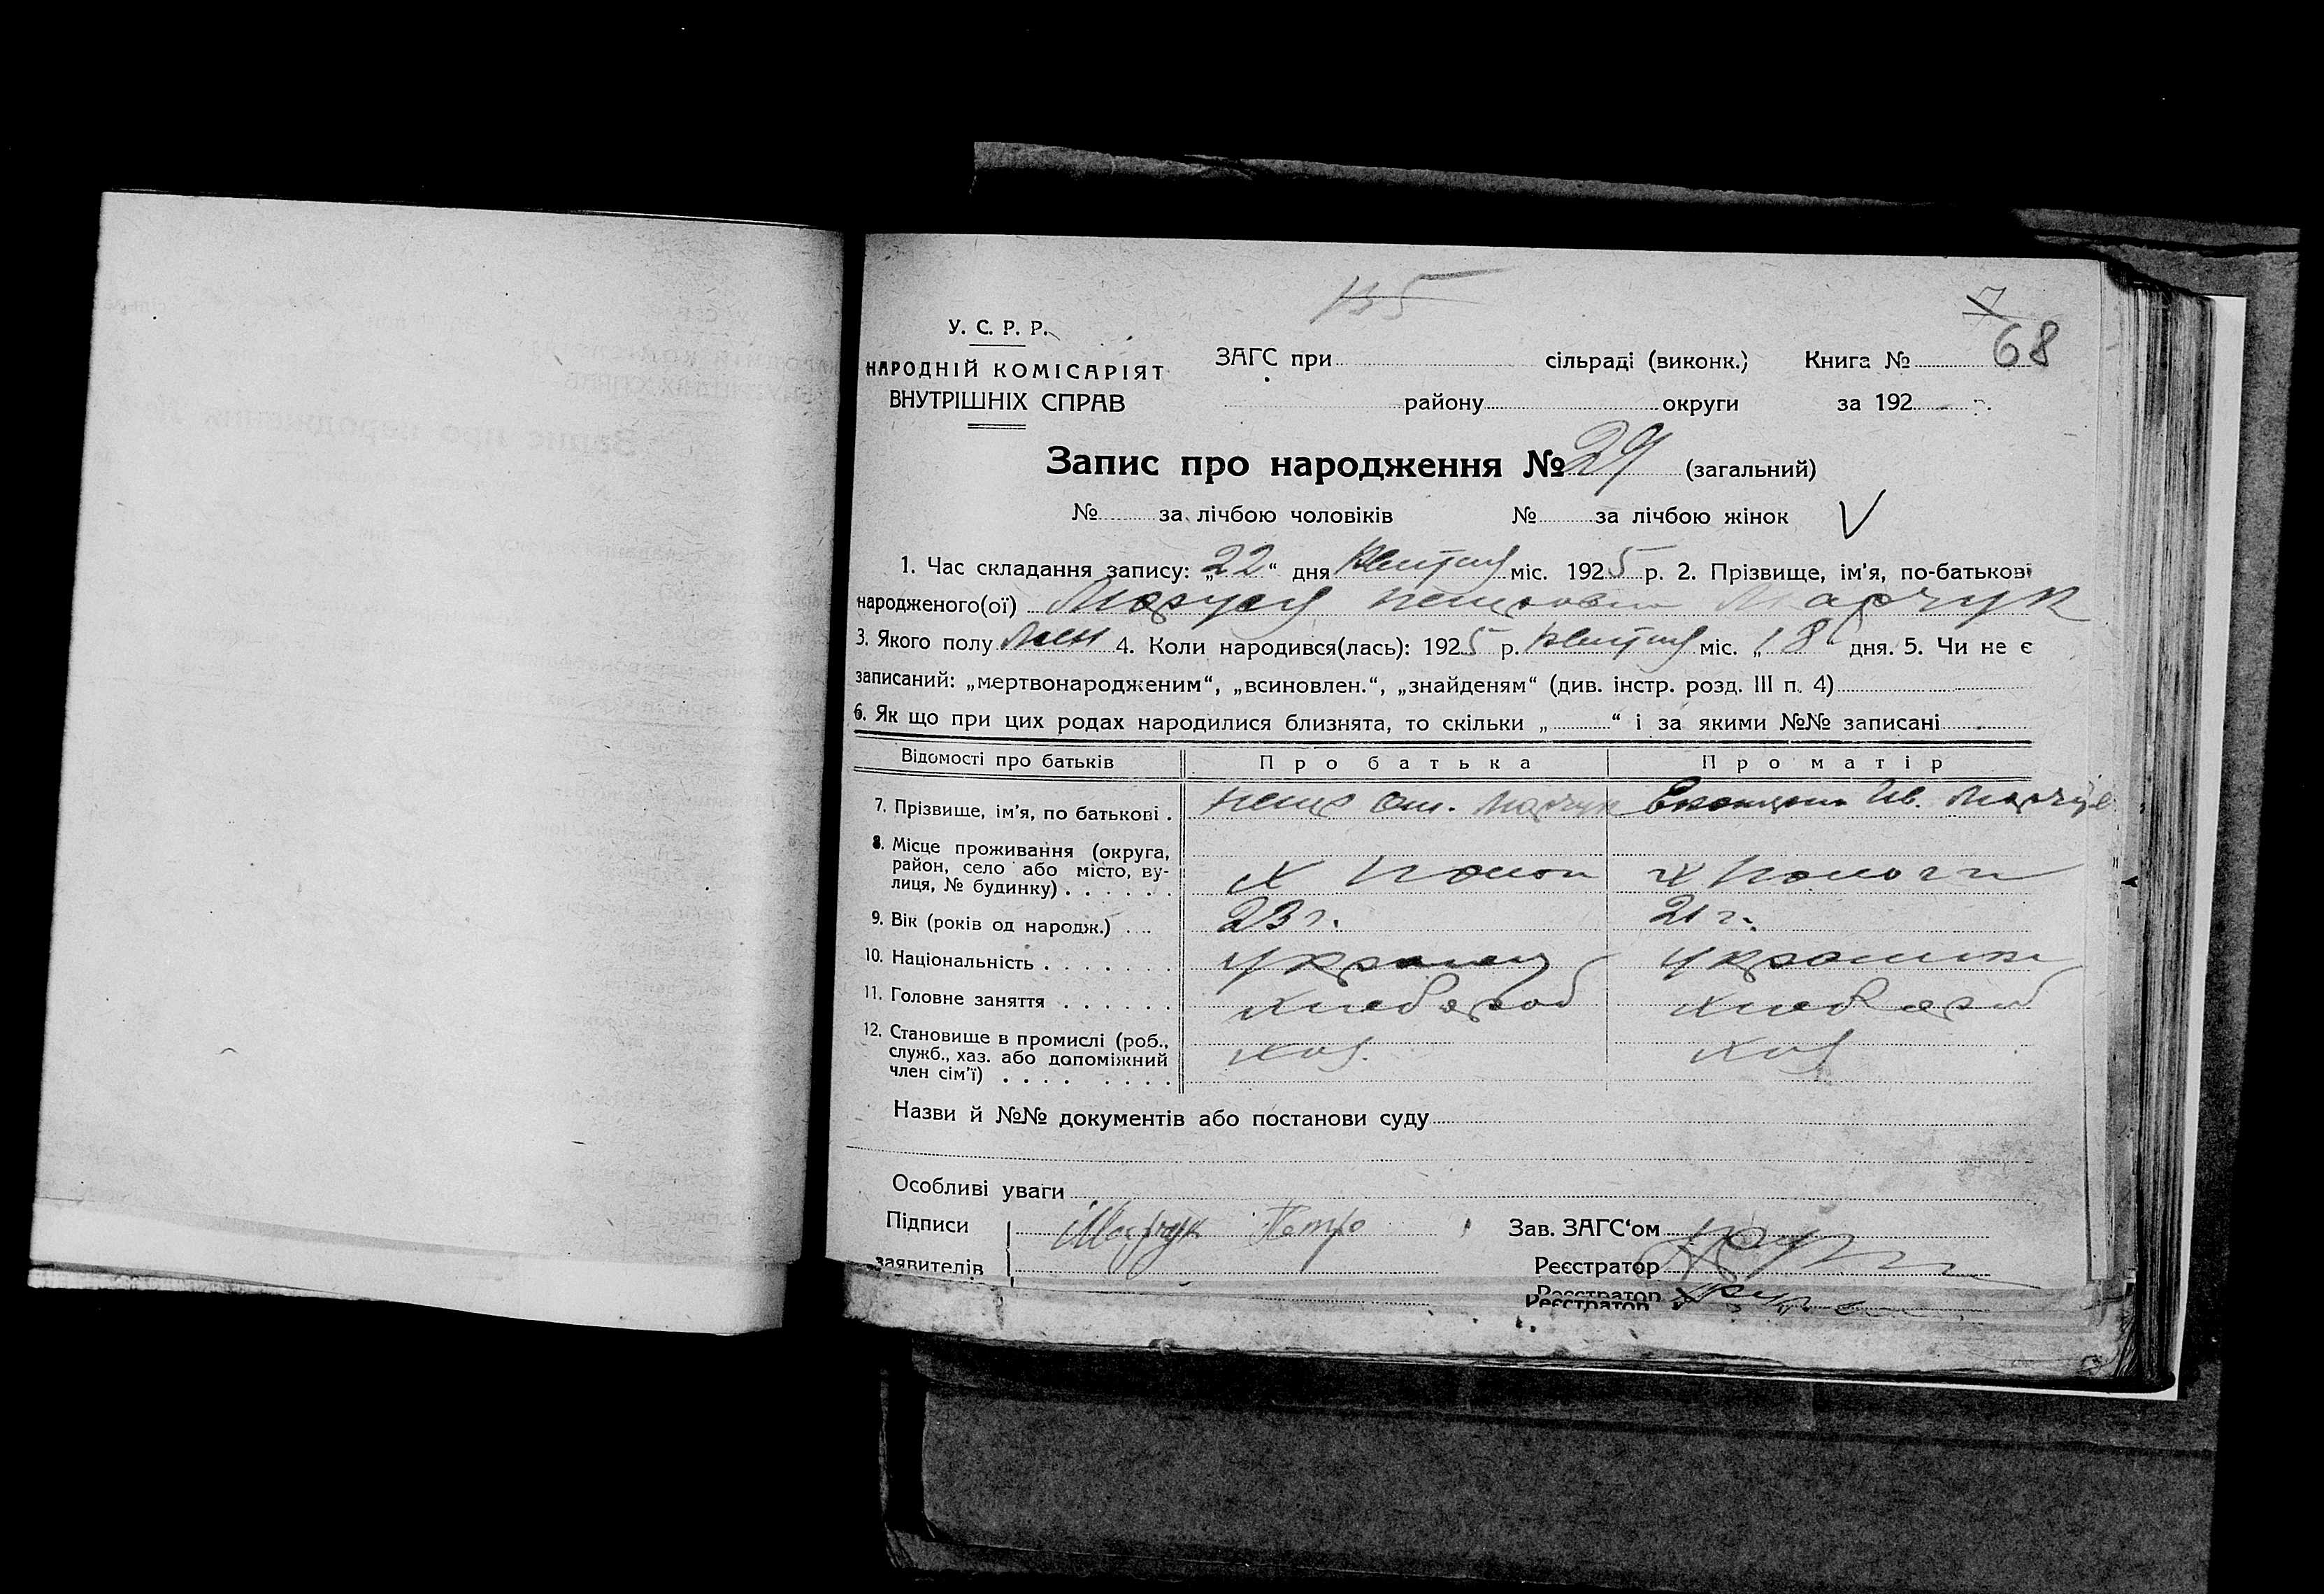 135
7
68
У. С. Р. Р.
НАРОДНІЙ КОМІСАРІЯТ
ВНУТРІШНІХ СПРАВ
ЗАГС при сільраді (виконк.) Книга №
району округи за 192 р.
Запис про народження № 29 (загальний)
№ за лічбою чоловіків № за лічбою жінок V
1. Час складання запису: „22“ дня Квітня міс. 1925 р. 2. Прізвище, ім'я, по-батькові
народженого(ої) Маруся Петровна Марчук
3. Якого полу жен 4. Коли народився(лась): 1925 р. Квітня міс. „18“ дня. 5. Чи не є
записаний: „мертвонародженим“, „всиновлен.“, „знайденям“ (див. інстр. розд. III п. 4)
6. Як що при цих родах народилися близнята, то скільки „ “ і за якими №№ записані
Відомості про батьків Про батька Про матір
7. Прізвище, ім'я, по батькові . Петро Марчук Ив. Марчук
8. Місце проживання (округа,
район, село або місто, ву-
лиця, № будинку) . . . . . . Х Х
9. Вік (років од народж.) . . . 23 г. 21 г.
10. Національність . . . . . . . украинец украинка
11. Головне заняття . . . . . . хлебороб хлебороб
12. Становище в промислі (роб.,
служб., хаз. або допоміжний
член сім'ї) . . . . . . . . хаз. хаз
Назви й №№ документів або постанови суду
Особливі уваги
Підписи Марчук Петро Зав. ЗАГС'ом
заявителів Реєстратор
Реєстратор
Реєстратор